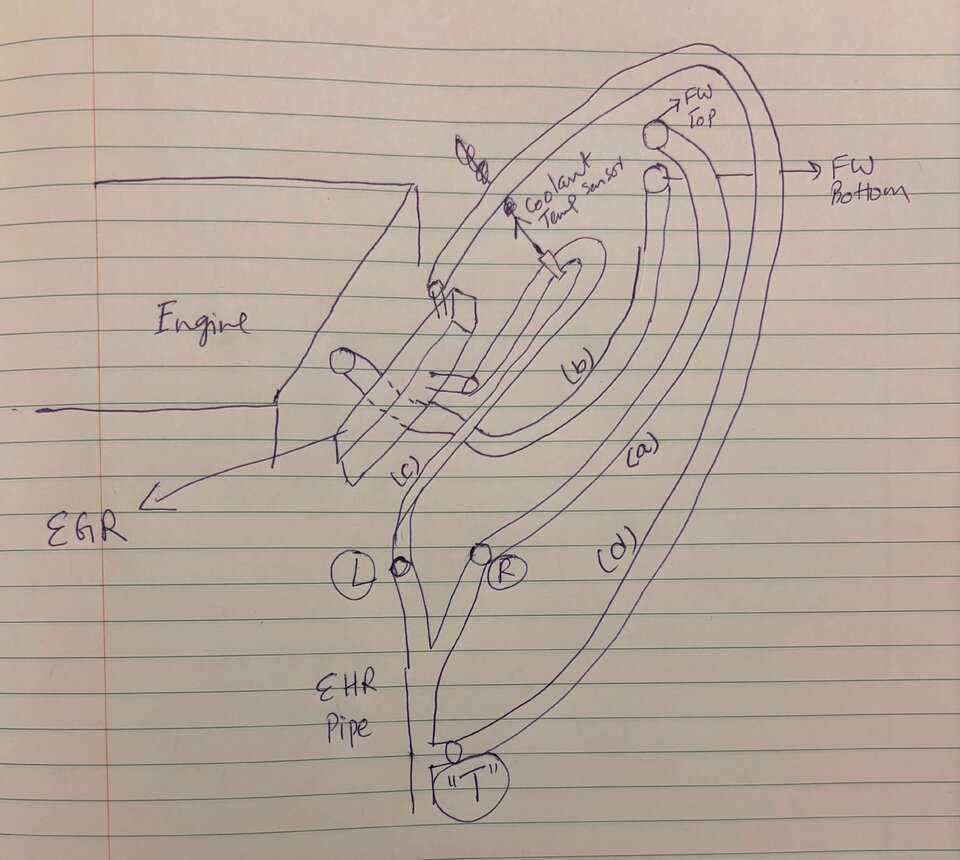 FW
Top
FW
Bottom
Coolant
Temp Sensor
Engine
(b)
(a)
(c)
EGR
(d)
L
R
EHR
Pipe
"T"